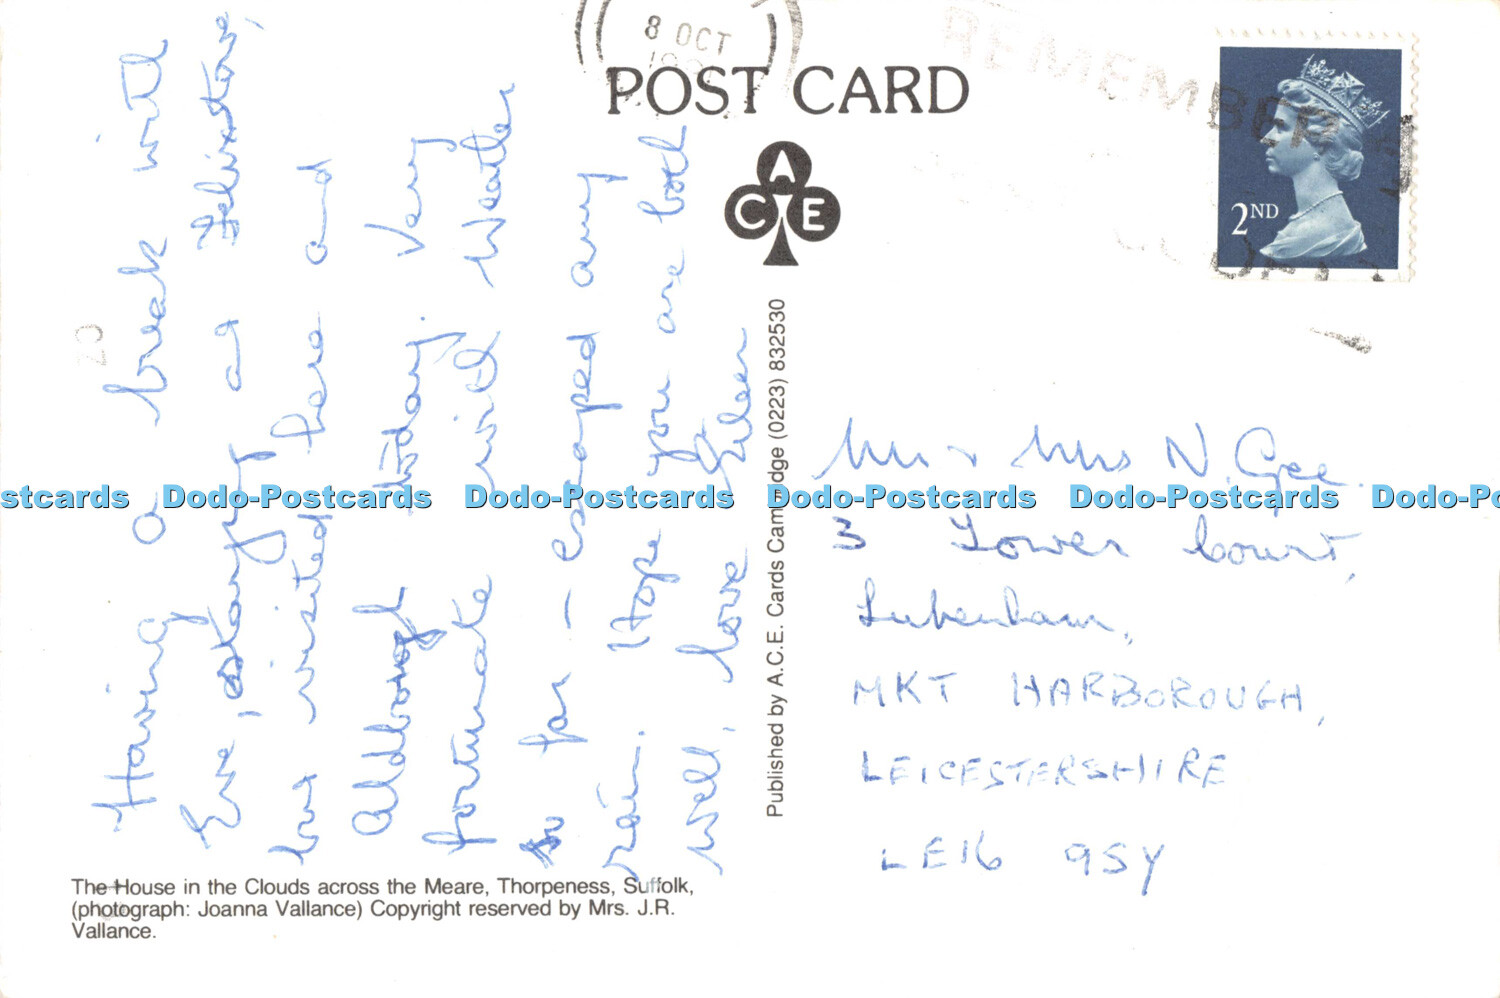 8 OCT
REMEMBER
POST CARD
A
C E
2ND
20
Having a break with
Eve, staying at Felixstowe,
but visited here and
Aldborough today. Very
fortunate with weather
so far - escaped any
rain. Hope you are both
well, love Eileen
Published by A.C.E. Cards Cambridge (0223) 832530
Mr & Mrs N. Gee.
3 Lower Court,
Lubenham,
MKT HARBOROUGH,
LEICESTERSHIRE
LE16 9SY
The House in the Clouds across the Meare, Thorpeness, Suffolk,
(photograph: Joanna Vallance) Copyright reserved by Mrs. J.R.
Vallance.
stcards Dodo-Postcards Dodo-Postcards Dodo-Postcards Dodo-Postcards Dodo-Po